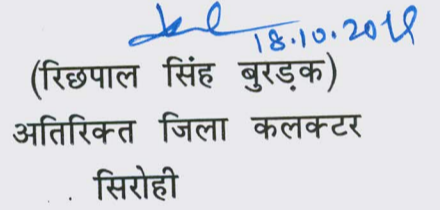 18.10.2019
(रिछपाल सिंह बुरड़क)
अतिरिक्त जिला कलक्टर
सिरोही